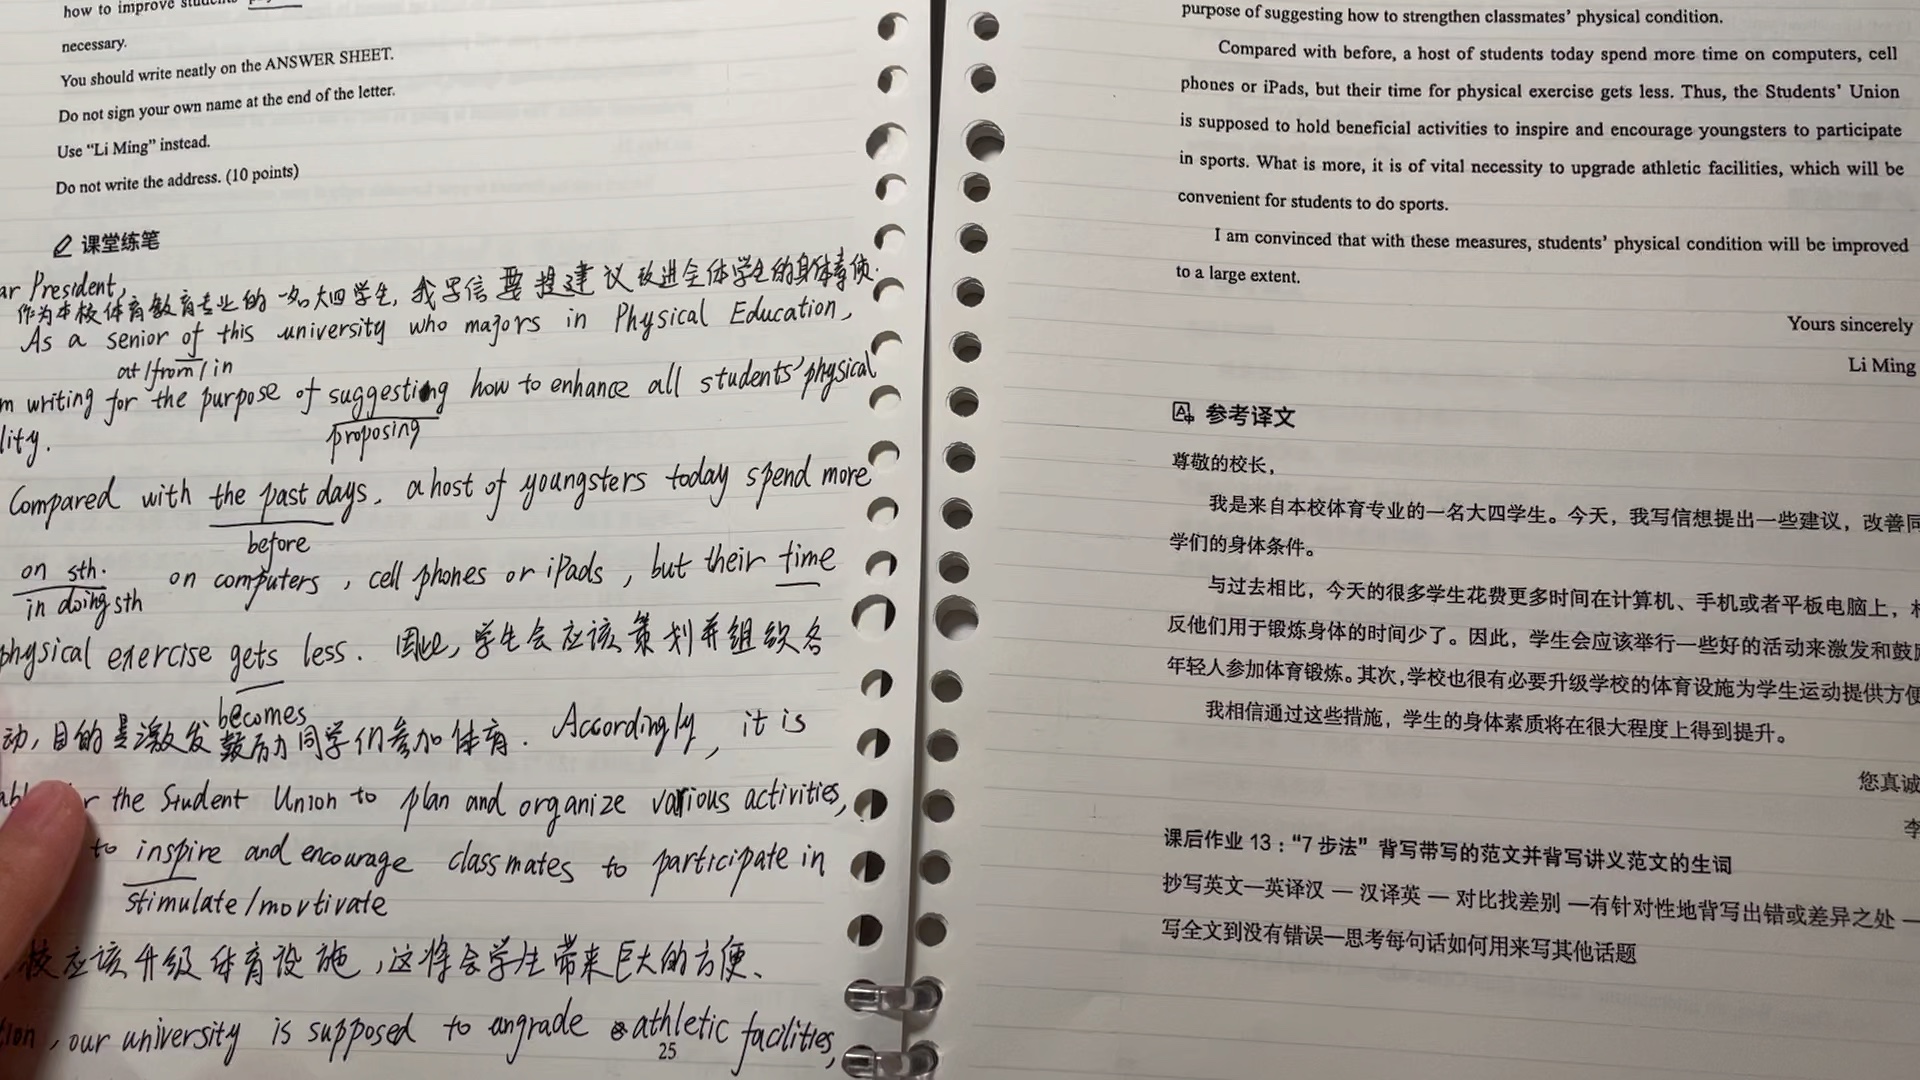 how to improve students'
necessary.
You should write neatly on the ANSWER SHEET.
Do not sign your own name at the end of the letter.
Use “Li Ming” instead.
Do not write the address. (10 points)
课堂练笔
ar President,
作为本校体育教育专业的一名大四学生,我写信要提建议改进全体学生的身体素质.
As a senior of this university who majors in Physical Education,
at/from/in
m writing for the purpose of suggesting how to enhance all students' physical
proposing
lity.
Compared with the past days, a host of youngsters today spend more
before
on sth. on computers, cell phones or iPads, but their time
in doing sth
physical exercise gets less. 因此,学生会应该策划并组织各
becomes
动,目的是激发鼓励同学们参加体育. Accordingly, it is
the Student Union to plan and organize various activities,
to inspire and encourage classmates to participate in
stimulate/mortivate
校应该升级体育设施,这将会学生带来巨大的方便、
tion, our university is supposed to ungrade athletic facilities,
25
purpose of suggesting how to strengthen classmates’ physical condition.
Compared with before, a host of students today spend more time on computers, cell
phones or iPads, but their time for physical exercise gets less. Thus, the Students’ Union
is supposed to hold beneficial activities to inspire and encourage youngsters to participate
in sports. What is more, it is of vital necessity to upgrade athletic facilities, which will be
convenient for students to do sports.
I am convinced that with these measures, students’ physical condition will be improved
to a large extent.
Yours sincerely
Li Ming
参考译文
尊敬的校长，
我是来自本校体育专业的一名大四学生。今天，我写信想提出一些建议，改善同
学们的身体条件。
与过去相比，今天的很多学生花费更多时间在计算机、手机或者平板电脑上，相
反他们用于锻炼身体的时间少了。因此，学生会应该举行一些好的活动来激发和鼓励
年轻人参加体育锻炼。其次，学校也很有必要升级学校的体育设施为学生运动提供方便
我相信通过这些措施，学生的身体素质将在很大程度上得到提升。
您真诚
李
课后作业 13：“7 步法”背写带写的范文并背写讲义范文的生词
抄写英文—英译汉 — 汉译英 — 对比找差别 —有针对性地背写出错或差异之处 —
写全文到没有错误—思考每句话如何用来写其他话题